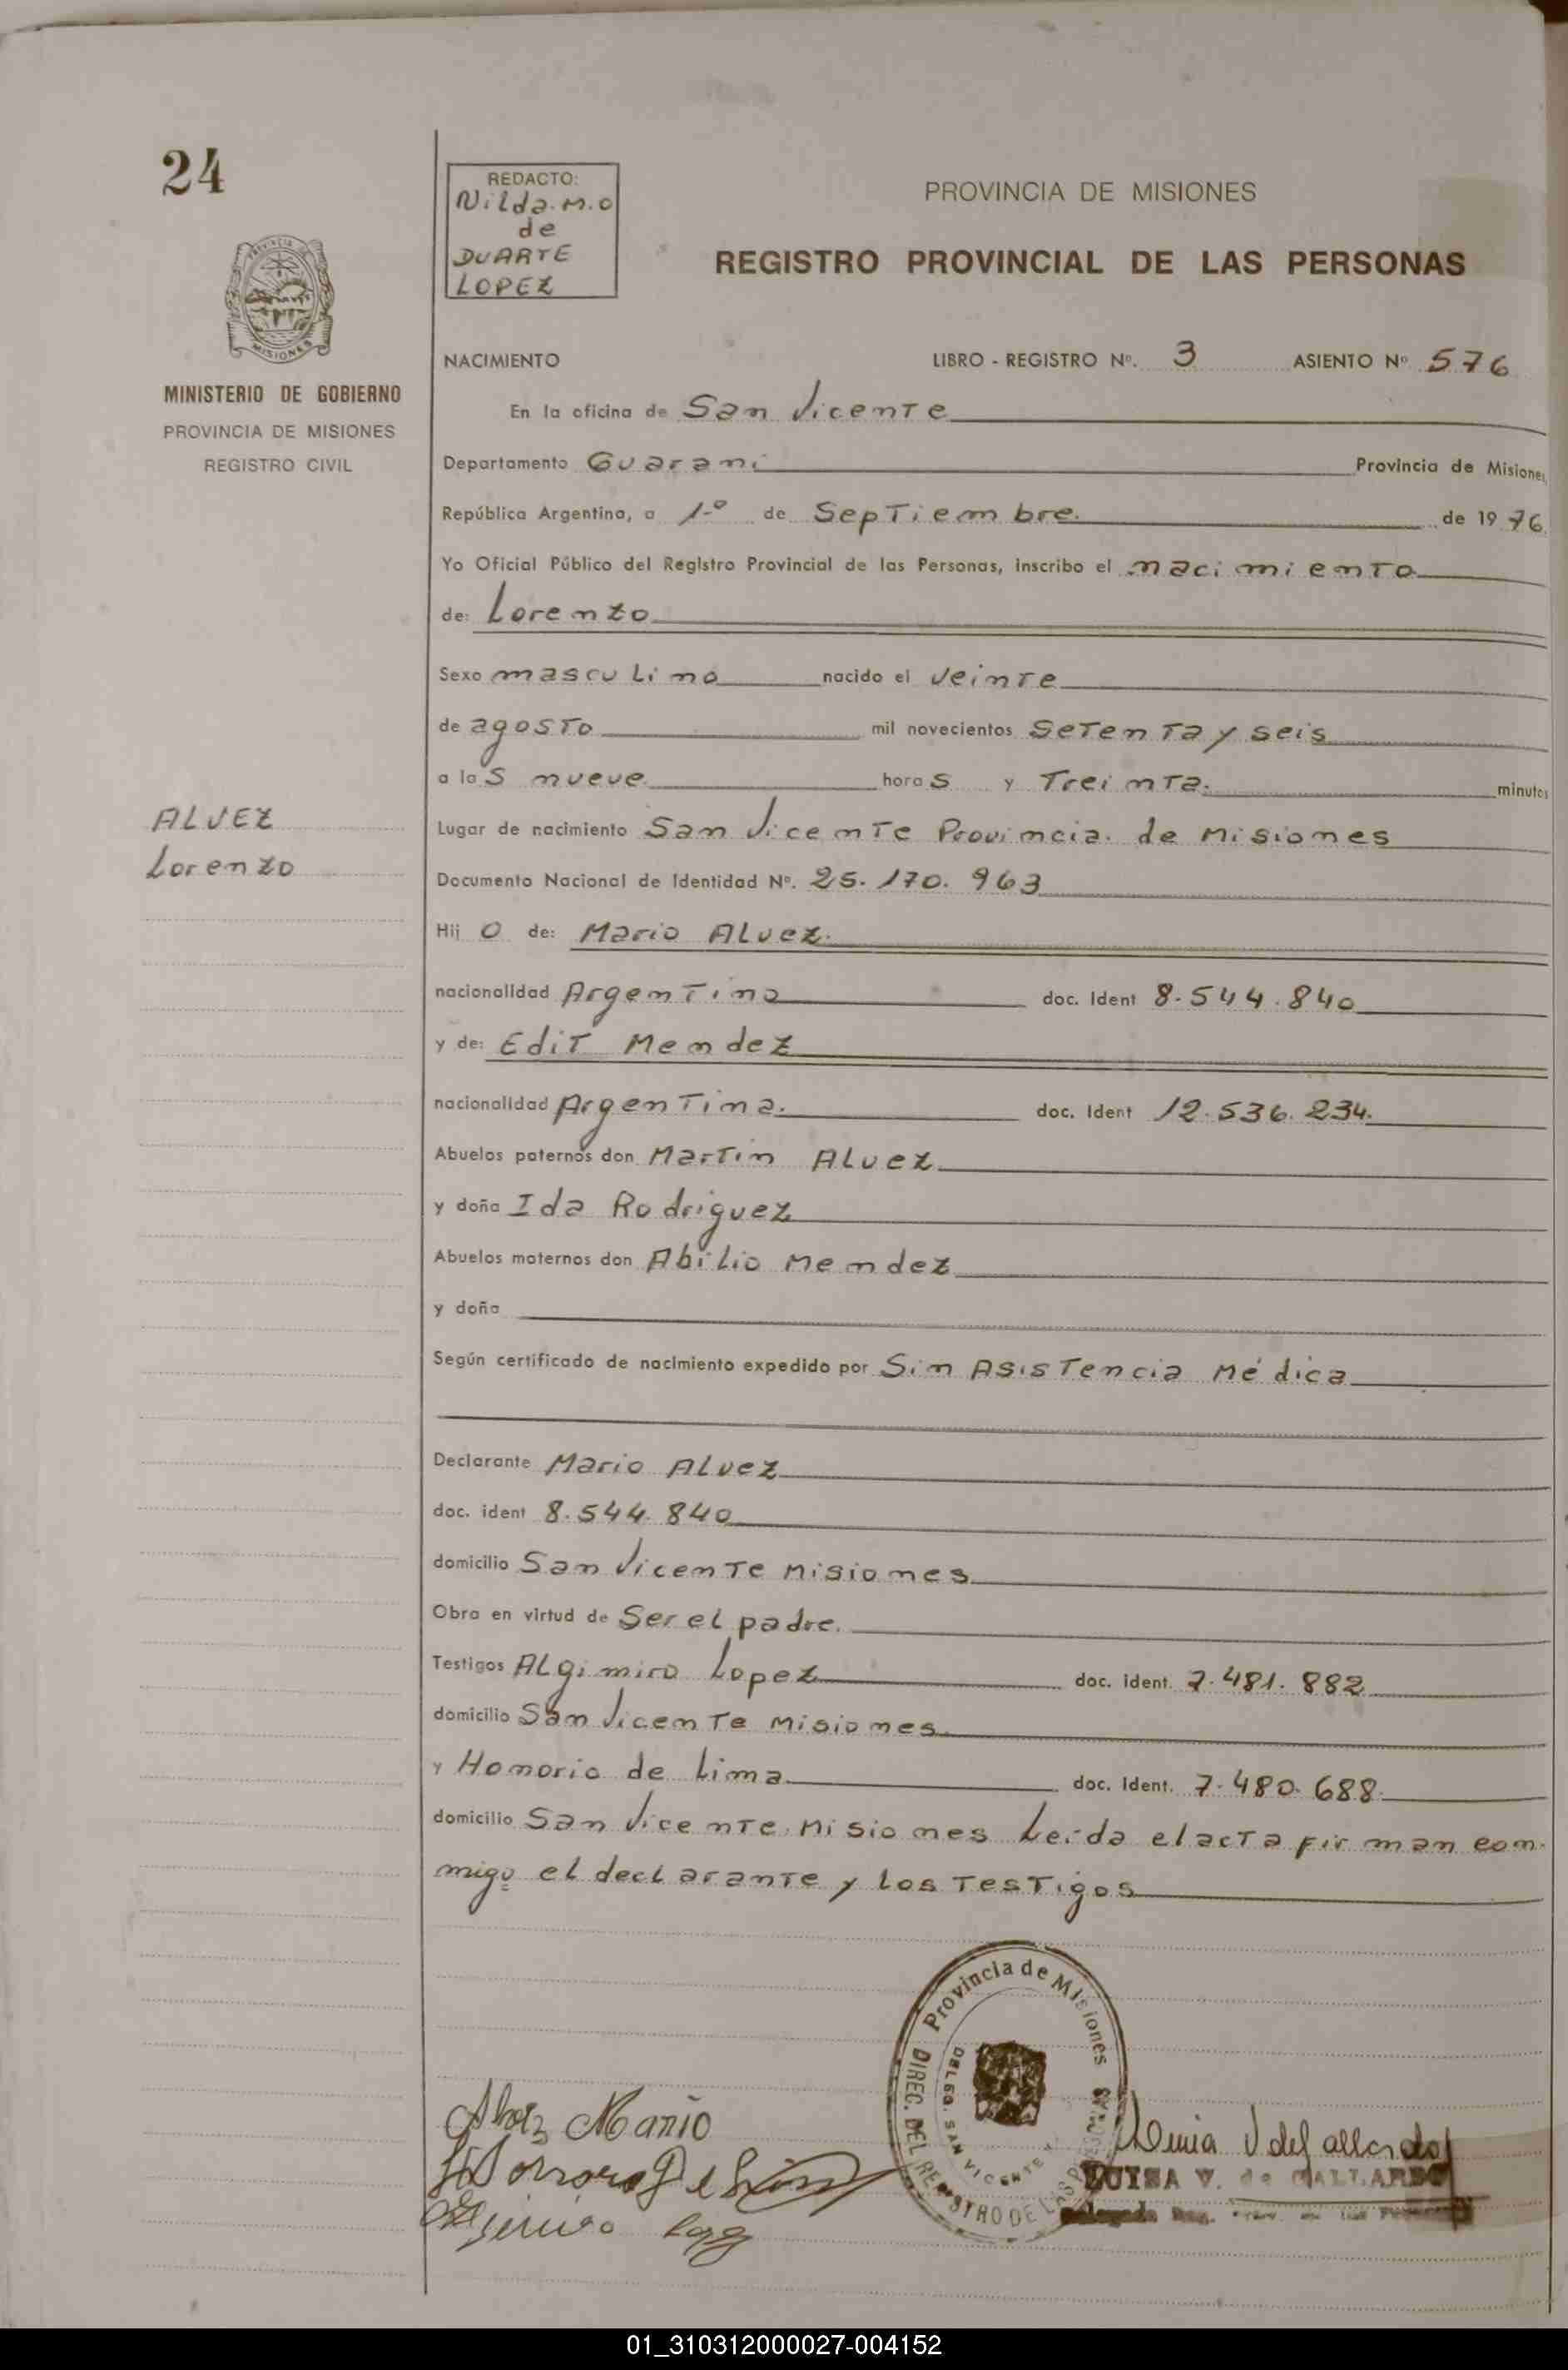 24
REDACTO:
Nilda. M. O
de
DUARTE
LOPEZ
PROVINCIA DE MISIONES
REGISTRO PROVINCIAL DE LAS PERSONAS
MISIONES
MINISTERIO DE GOBIERNO
PROVINCIA DE MISIONES
REGISTRO CIVIL
NACIMIENTO LIBRO - REGISTRO Nº. 3 ASIENTO Nº 576
En la oficina de San Vicente
Departamento Guarani Provincia de Misiones,
República Argentina, a 1º de Septiembre. de 1976.
Yo Oficial Público del Registro Provincial de las Personas, inscribo el nacimiento
de: Lorenzo
Sexo masculino nacido el veinte
de agosto mil novecientos setenta y seis
a las nueve horas y Treinta. minutos
ALVEZ
Lorenzo
Lugar de nacimiento San Vicente Provincia de Misiones
Documento Nacional de Identidad Nº. 25.170.963
Hij o de: Mario Alvez.
nacionalidad Argentina doc. Ident 8.544.840
y de: Edit Mendez
nacionalidad Argentina. doc. Ident 12.536.234.
Abuelos paternos don Martin Alvez
y doña Ida Rodriguez
Abuelos maternos don Abilio Mendez
y doña
Según certificado de nacimiento expedido por Sin Asistencia Médica
Declarante Mario Alvez
doc. ident 8.544.840
domicilio San Vicente Misiones
Obra en virtud de Ser el padre.
Testigos Algimiro Lopez doc. ident. 7.481.882
domicilio San Vicente Misiones
y Honorio de Lima doc. Ident. 7.480.688.
domicilio San Vicente Misiones Leida el acta firman con-
migo el declarante y los Testigos
Provincia de Misiones
DIREC. DEL REGISTRO DE LAS
DELEG. SAN VICENTE
Alvez Mario
LUISA V. de GALLARDO
Delegada Reg.
01_310312000027-004152